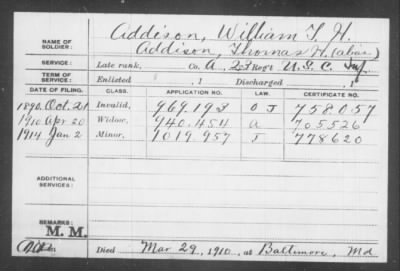 NAME OF SOLDIER: Addison, William T. H.
Addison, Thomas H. (alias)
SERVICE: Late rank, Co. A, 23 Reg't U.S.C. Inf.
TERM OF SERVICE: Enlisted , 1 Discharged , 1
DATE OF FILING. CLASS. APPLICATION NO. LAW. CERTIFICATE NO.
1890, Oct. 21 Invalid, 969.193 J 758.057
1910 Apr 20 Widow, 940.454 a 705526
1914 Jan 2 Minor, 1019.957 J 778620
ADDITIONAL SERVICES:
REMARKS:
M. M.
Died Mar 29, 1910, at Baltimore, Md